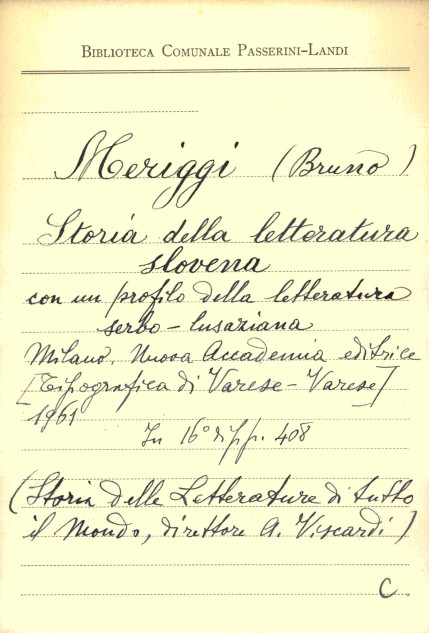 BIBLIOTECA COMUNALE PASSERINI-LANDI
Meriggi (Bruno)
Storia della letteratura
slovena
con un profilo della letteratura
serbo-lusaziana
Milano, Nuova Accademia editrice
[Tipografica di Varese-Varese]
1961
In 16° di pp. 408
(Storia delle Letterature di tutto
il Mondo, direttore A. Viscardi)
C